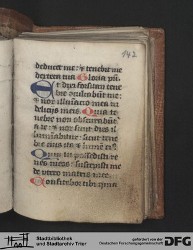 142
deducet me: et tenebit me
dextera tua Gloria p
Et dixi forsitan tene
bre
me: et
nox illuminacio mea in
delicijs meis Quia tene
bre non obscurabunt
a te et nox sicut dies il
sicut tene
bre eius ita lumen eius
Quia tu possedisti re
nes meos: suscepisti me
de utero matris mee
Confitebor tibi quia
Stadtbibliothek
und Stadtarchiv Trier
gefördert von der
Deutschen Forschungsgemeinschaft
DFG